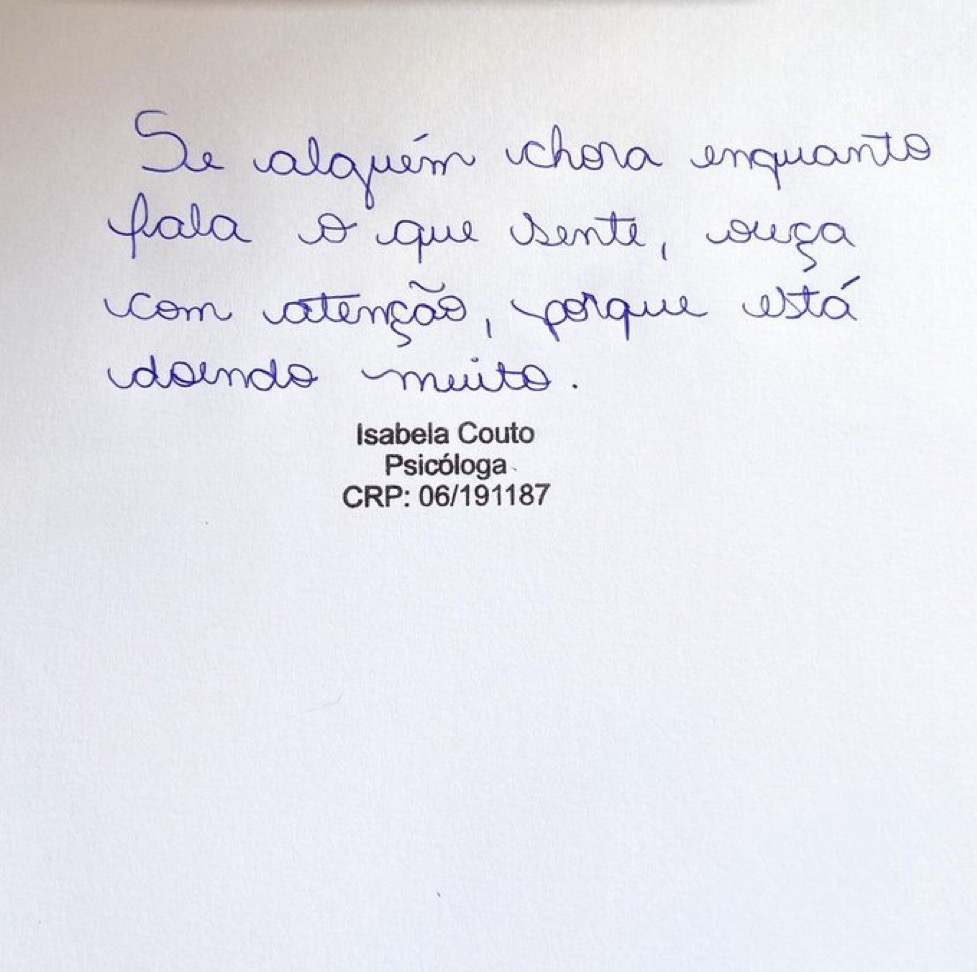 Se alguém chora enquanto
fala o que sente, ouça
com atenção, porque está
doendo muito.
Isabela Couto
Psicóloga
CRP: 06/191187